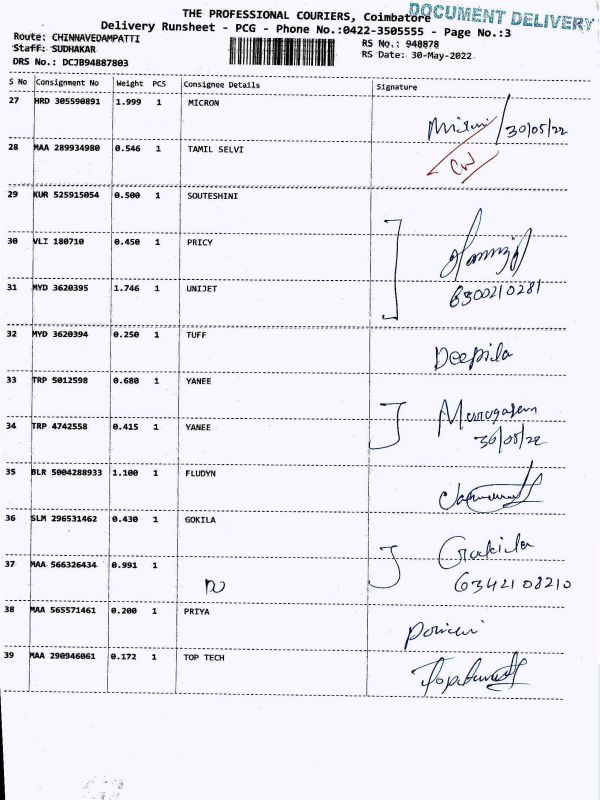 THE PROFESSIONAL COURIERS, Coimbatore
DOCUMENT DELIVERY
Delivery Runsheet - PCG - Phone No.:0422-3505555 - Page No.:3
Route: CHINNAVEDAMPATTI
RS No.: 948878
Staff: SUDHAKAR
RS Date: 30-May-2022
DRS No.: DCJB94887803
S No Consignment No Weight PCS Consignee Details Signature
27 HRD 305590891 1.999 1 MICRON
30/05/22
28 MAA 289934980 0.546 1 TAMIL SELVI
29 KUR 525915054 0.500 1 SOUTESHINI
30 VLI 180710 0.450 1 PRICY
31 MYD 3620395 1.746 1 UNIJET
6300210281
32 MYD 3620394 0.250 1 TUFF
Deepila
33 TRP 5012598 0.680 1 YANEE
Murugasan
34 TRP 4742558 0.415 1 YANEE
30/05/22
35 BLR 5004288933 1.100 1 FLUDYN
36 SLM 296531462 0.430 1 GOKILA
Gokila
37 MAA 566326434 0.991 1
DO
6342108210
38 MAA 565571461 0.200 1 PRIYA
39 MAA 290946061 0.172 1 TOP TECH